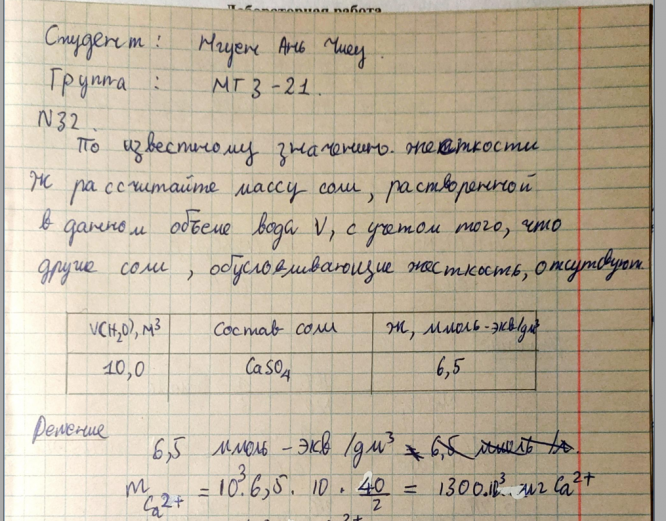 Лабораторная работа
Студент : Нгуен Ань Чиеу.
Группа : МТ3-21.
N32.
По известному значению жесткости
Ж рассчитайте массу соли, растворенной
в данном объеме вода V, с учетом того, что
другие соли, обусловливающие жесткость, отсутсвуют
V(H₂O), м³ Состав соли Ж, ммоль-экв/дм³
10,0 CaSO₄ 6,5
Решение
6,5 ммоль-экв/дм³
m Ca²⁺ = 10³·6,5·10·40/2 = 1300·10³ мг Ca²⁺